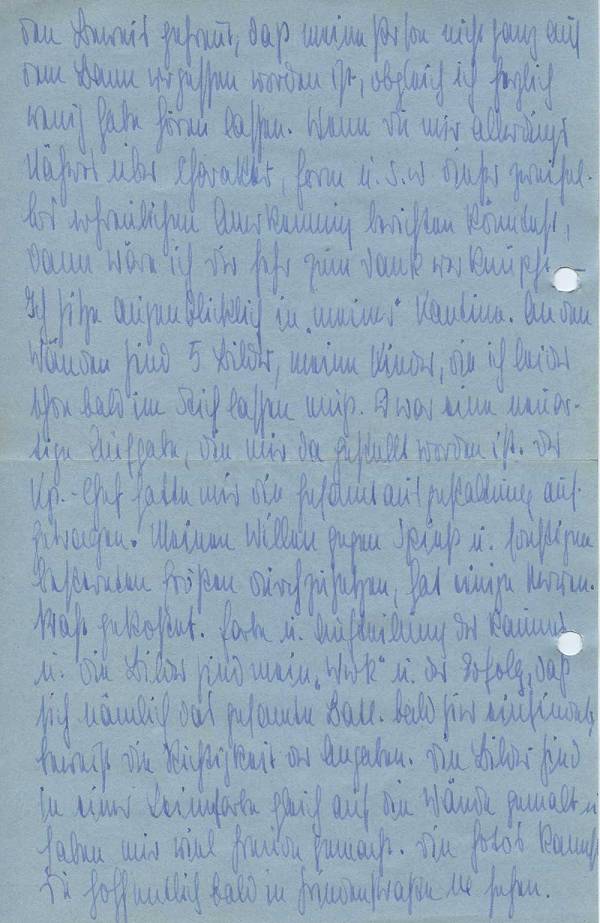 den Beweis gefreut, daß meine Person nicht ganz aus
dem Bann vergessen worden ist, obgleich ich herzlich
wenig habe hören lassen. Wenn Du mir allerdings
Näheres über Charakter, Form u. s. w dieser zweifel-
los erfreulichen Anerkennung berichten könntest,
dann wäre ich Dir sehr zum Dank verknüpft.
Ich sitze augenblicklich in „meiner" Kantine. An den
Wänden sind 5 Bilder, meine Kinder, die ich leider
schon bald im Stich lassen muß. Es war eine neuar-
tige Aufgabe, die mir da gestellt worden ist. Der
Kp.-Chef hatte mir die Gesamtausgestaltung auf-
getragen. Meinen Willen gegen Spieß u. sonstigen
Größen durchzusetzen, hat einige Nerven-
kraft gekostet. Farbe u. Aufteilung der Räume
u. die Bilder sind mein „Werk" u. der Erfolg, daß
sich nämlich das gesamte Batl. bald hier einfindet,
beweist die Richtigkeit der Angaben. Die Bilder sind
in einer Leimfarbe gleich auf die Wände gemalt u
haben mir viel Freude gemacht. Die Fotos kannst
Du hoffentlich bald in sehen.